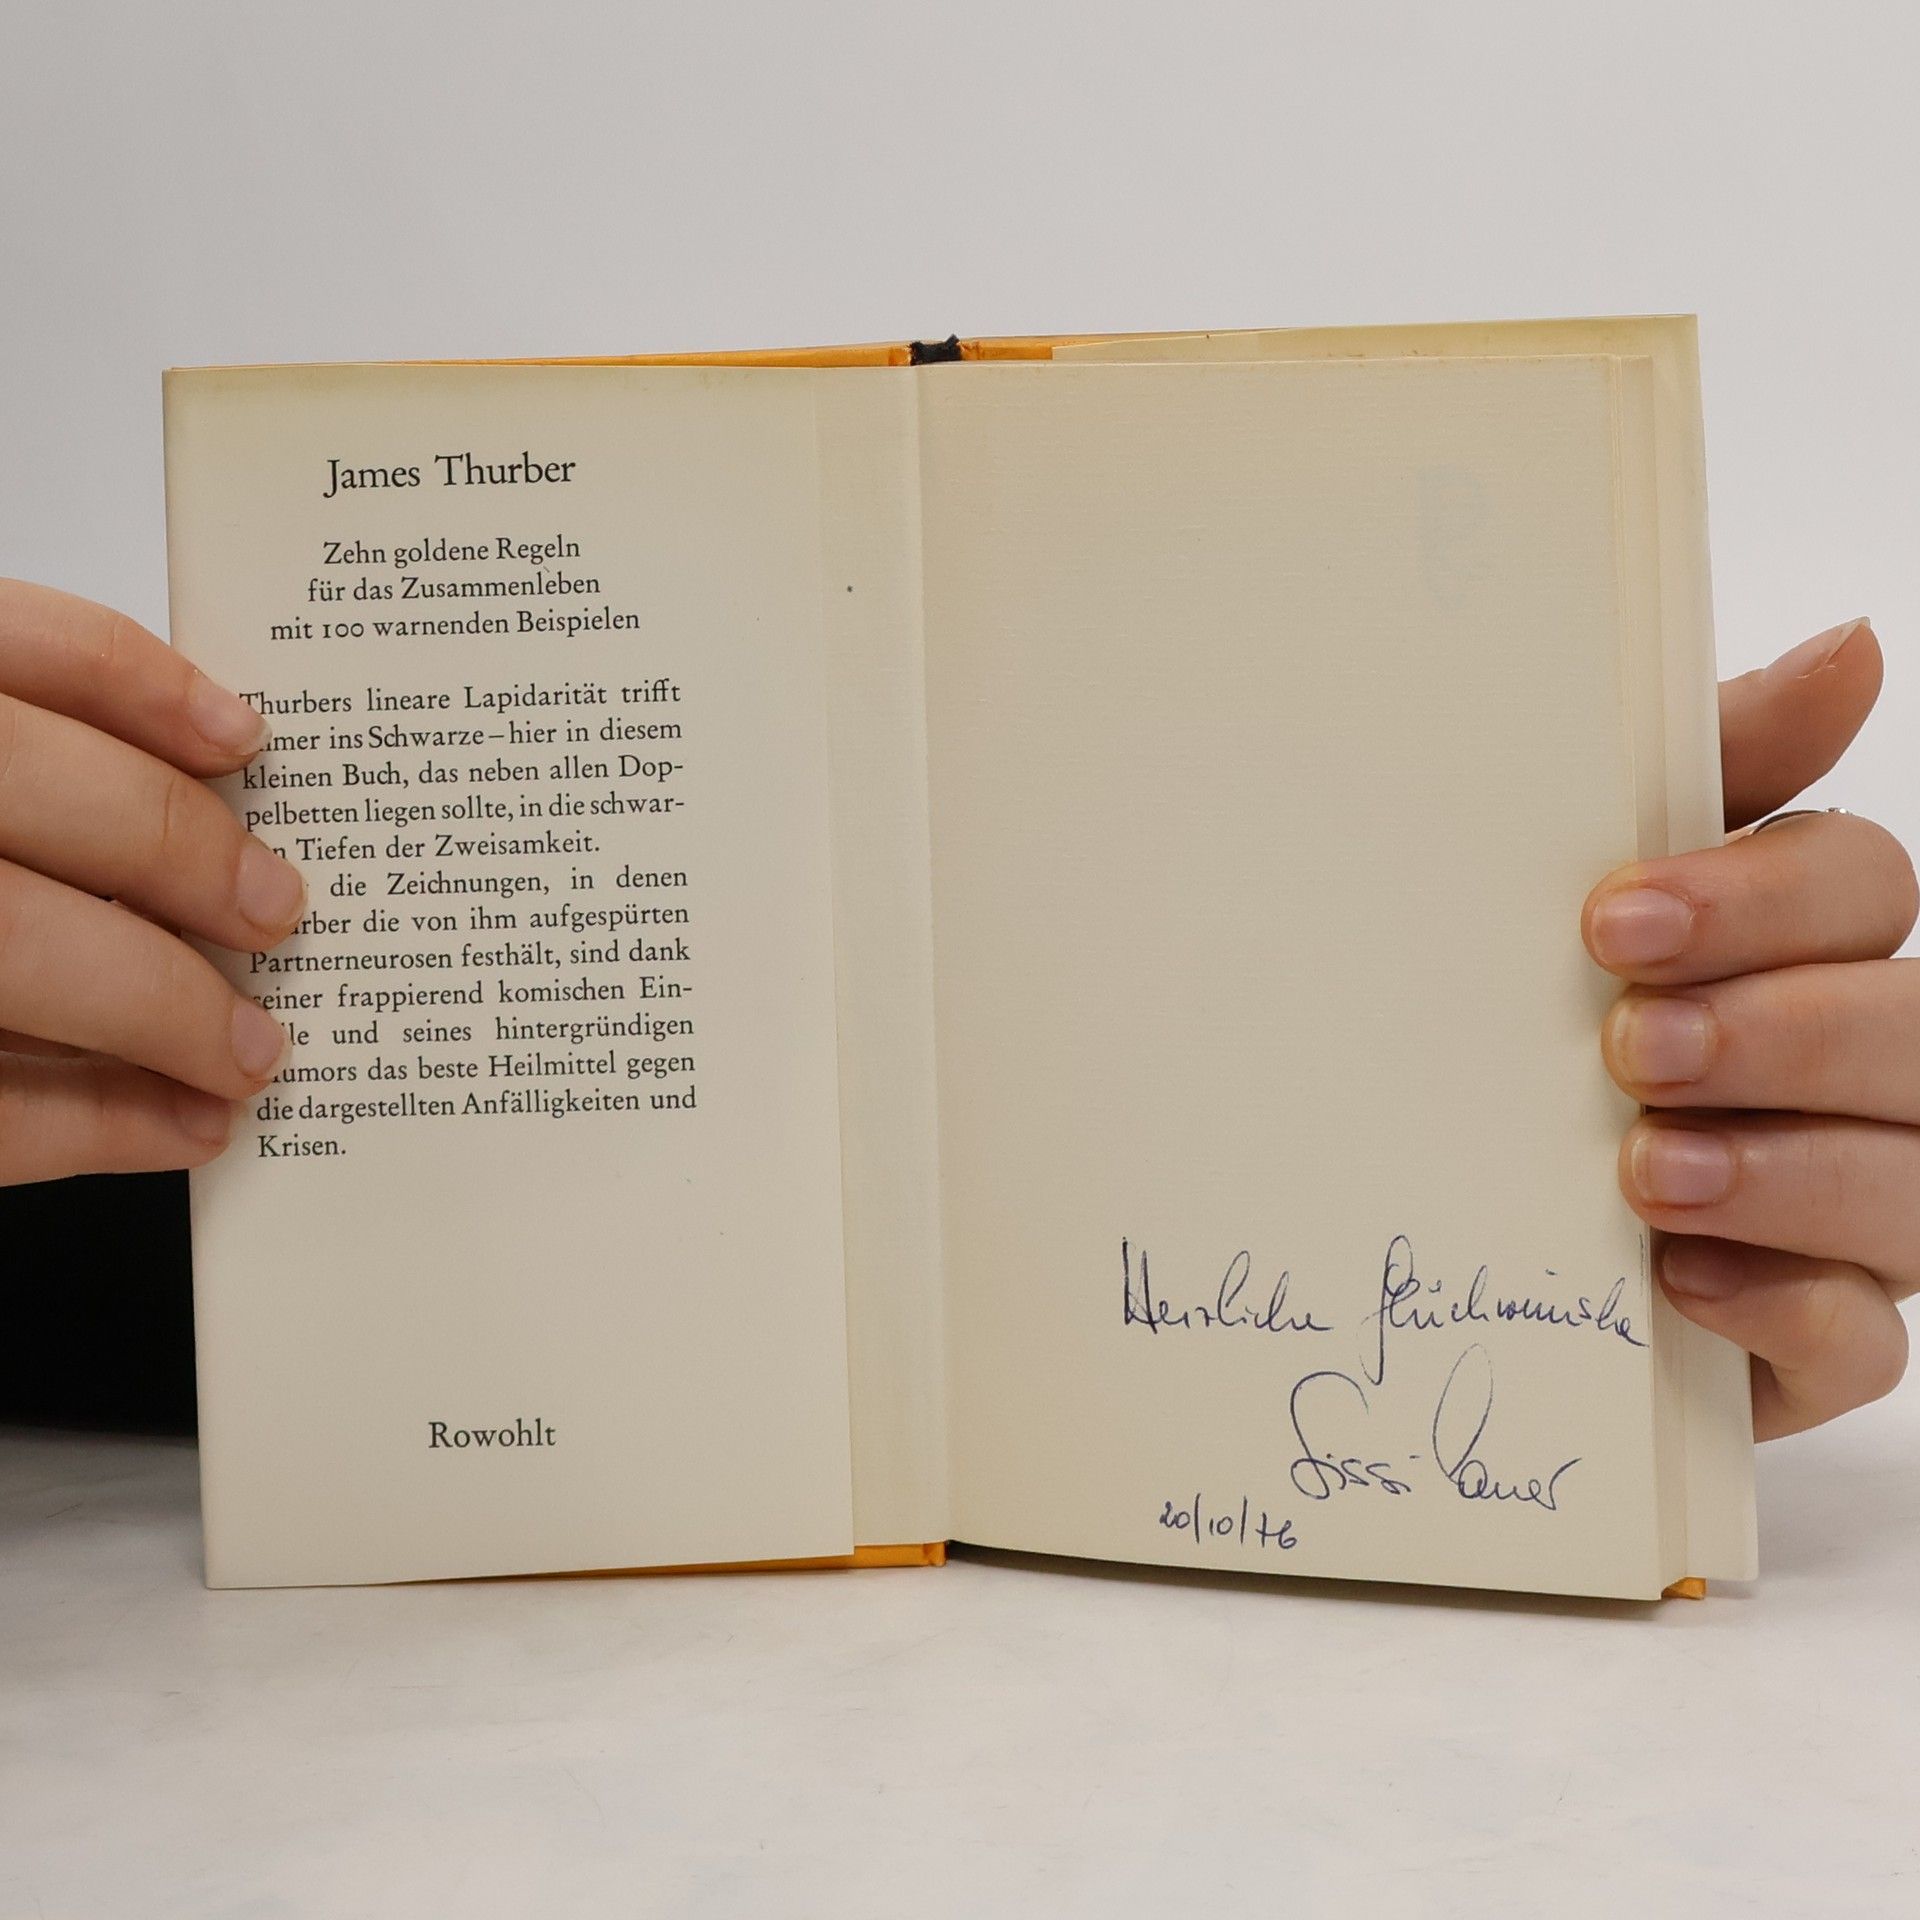 James Thurber
Zehn goldene Regeln
für das Zusammenleben
mit 100 warnenden Beispielen
Thurbers lineare Lapidarität trifft
ins Schwarze – hier in diesem
kleinen Buch, das neben allen Dop-
pelbetten liegen sollte, in die schwar-
Tiefen der Zweisamkeit.
die Zeichnungen, in denen
die von ihm aufgespürten
Partnerneurosen festhält, sind dank
seiner frappierend komischen Ein-
und seines hintergründigen
Humors das beste Heilmittel gegen
die dargestellten Anfälligkeiten und
Krisen.
Rowohlt
Herzliche Glückwünsche
Sissi
20/10/76